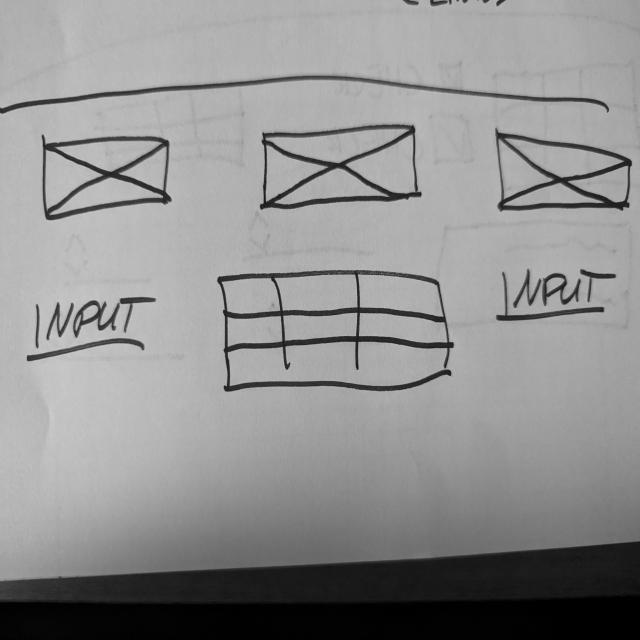 INPUT
INPUT